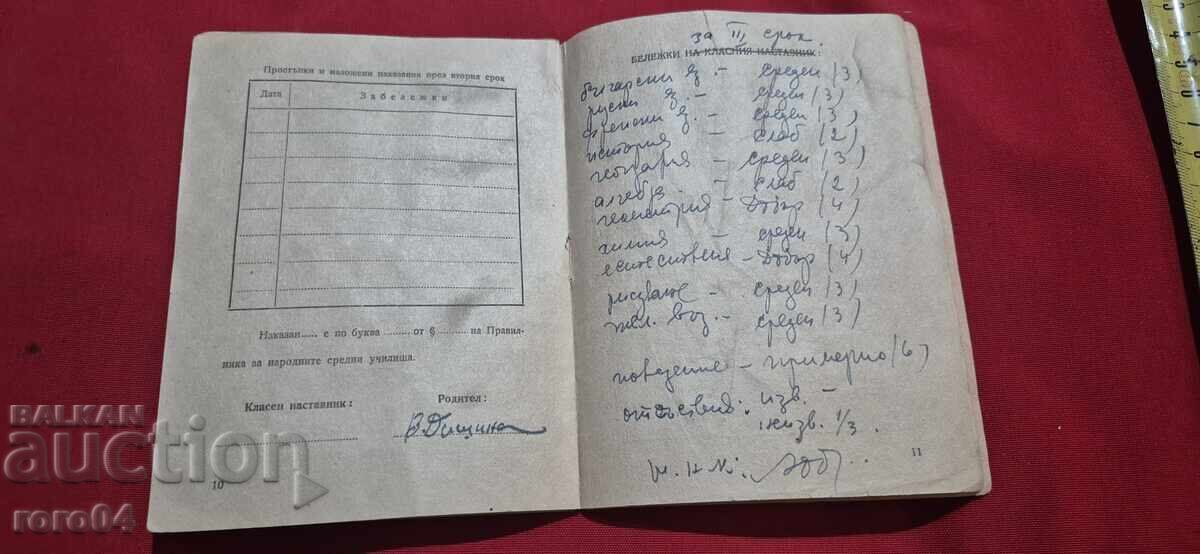 Простъпки и наложени наказания през втория срок
Дата Забележки
Наказан..... е по буква ......... от § ......... на Правил-
ника за народните средни училища.
Класен наставник: Родител:
10
за III срок.
БЕЛЕЖКИ НА КЛАСНИЯ НАСТАВНИК:
български ез. – среден (3)
руски ез. – среден (3)
ез. – среден (3)
история – слаб (2)
география – среден (3)
алгебра – слаб (2)
геометрия – Добър (4)
химия – среден (3)
– Добър (4)
рисуване – среден (3)
физ. въз. – среден (3)
поведение – примерно (6)
отсъствия: изв. –
неизв. 1/3.
11
BALKAN
auction
roro04